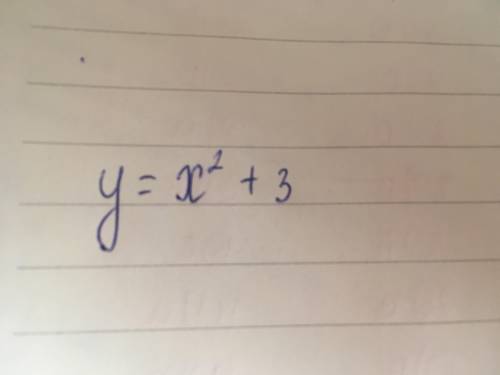 y = x² + 3